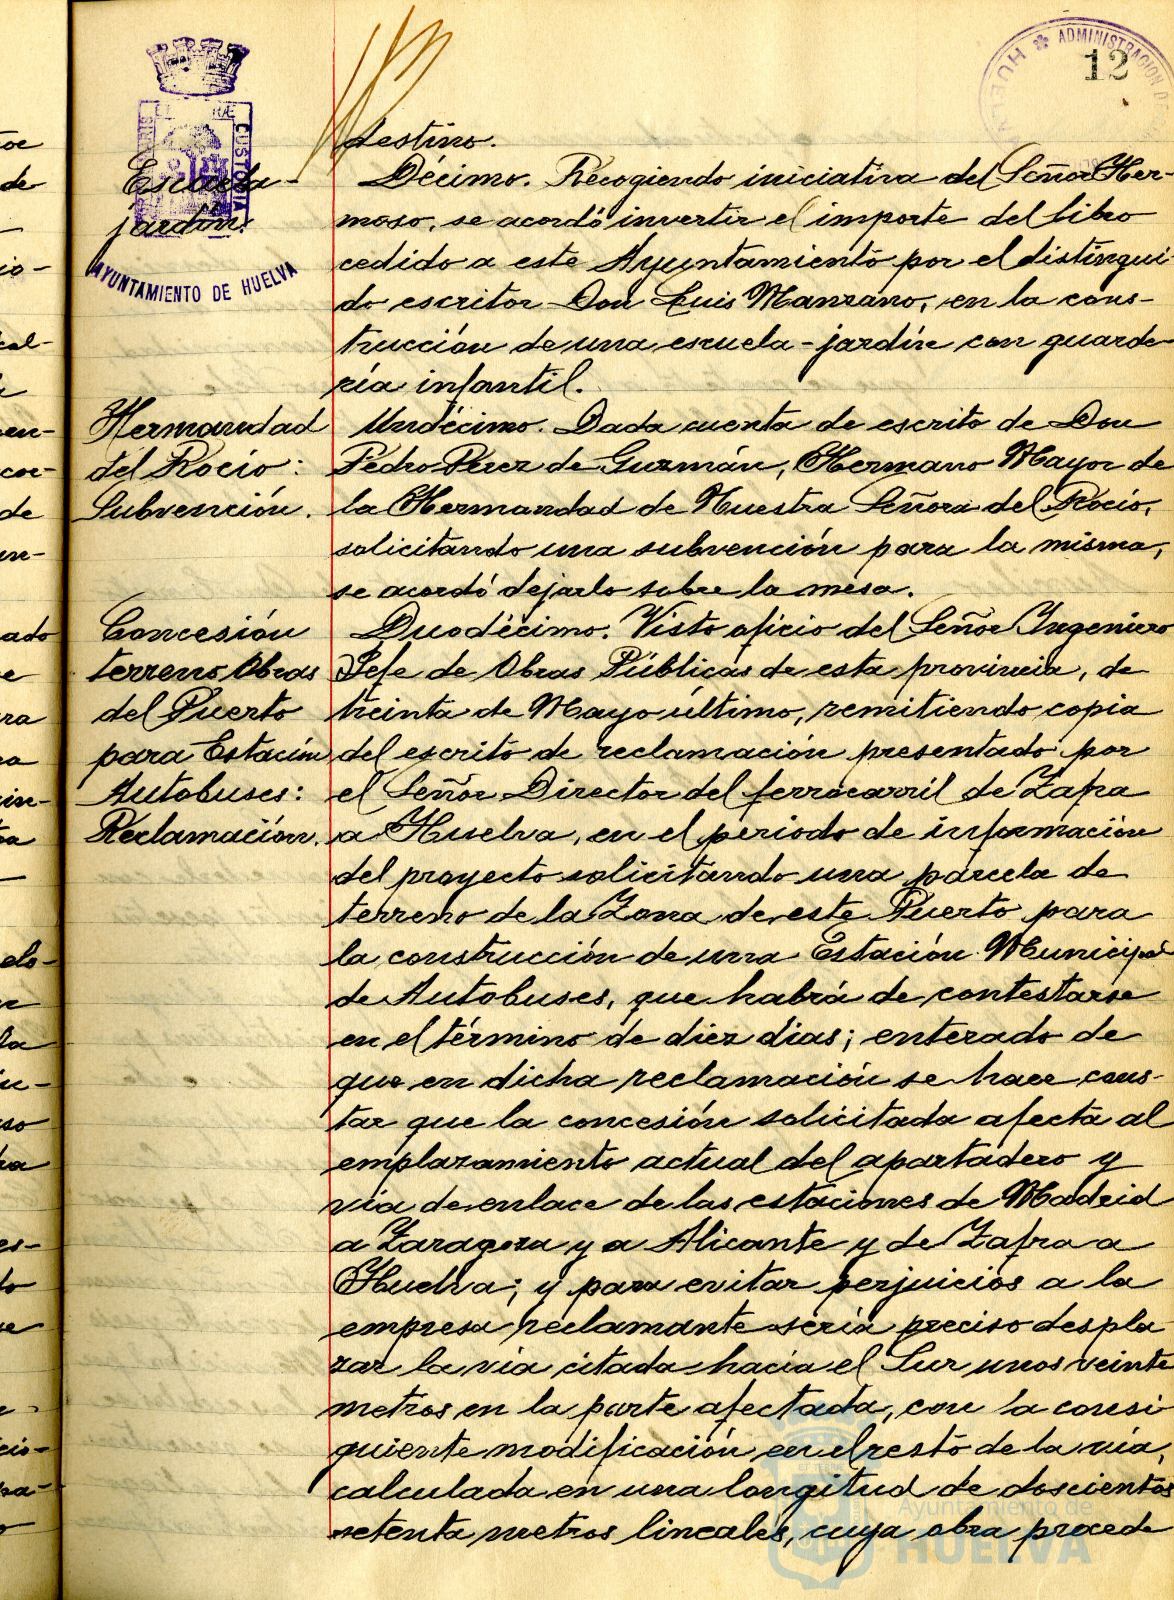 12
ADMINISTRACION DE
HUELVA
CUSTODIA
AYUNTAMIENTO DE HUELVA
destino.
Escuela-
jardín.
Décimo. Recogiendo iniciativa del Señor Her-
moso, se acordó invertir el importe del libro
cedido a este Ayuntamiento por el distingui-
do escritor Don Luis Manzano, en la cons-
trucción de una escuela-jardín con guarde-
ría infantil.
Hermandad
del Rocío:
Subvención.
Undécimo. Dada cuenta de escrito de Don
Pedro Pérez de Guzmán, Hermano Mayor de
la Hermandad de Nuestra Señora del Rocío,
solicitando una subvención para la misma,
se acordó dejarlo sobre la mesa.
Concesión
terreno Obras
del Puerto
para Estación
Autobuses:
Reclamación.
Duodécimo. Visto oficio del Señor Ingeniero
Jefe de Obras Públicas de esta provincia, de
treinta de Mayo último, remitiendo copia
del escrito de reclamación presentado por
el Señor Director del ferrocarril de Zafra
a Huelva, en el periodo de información
del proyecto solicitando una parcela de
terreno de la Zona de este Puerto para
la construcción de una Estación Municipal
de Autobuses, que habrá de contestarse
en el término de diez dias; enterado de
que en dicha reclamación se hace cons-
tar que la concesión solicitada afecta al
emplazamiento actual del apartadero y
vía de enlace de las estaciones de Madrid
a Zaragoza y a Alicante y de Zafra a
Huelva; y para evitar perjuicios a la
empresa reclamante sería preciso despla-
zar la vía citada hacia el Sur unos veinte
metros en la parte afectada, con la consi-
guiente modificación en el resto de la vía,
calculada en una longitud de doscientos
setenta metros lineales, cuya obra procede
Ayuntamiento de
HUELVA